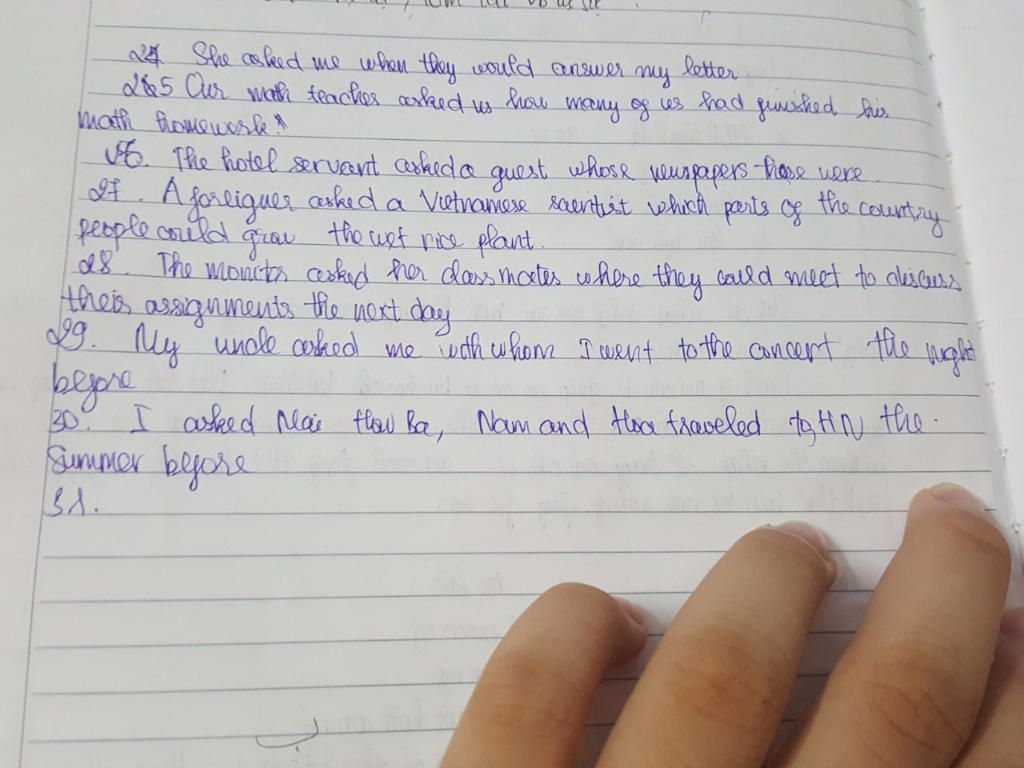 24. She asked me when they would answer my letter
25 Our math teacher asked us how many of us had finished his
math homework.
26. The hotel servant asked a guest whose newspapers those were.
27. A foreigner asked a Vietnamese scientist which parts of the country
people could grow the wet rice plant.
28. The monitor asked her classmates where they could meet to discuss
their assignments the next day
29. My uncle asked me with whom I went to the concert the night
before
30. I asked Mai How Ba, Nam and Hoa traveled to HN the
Summer before
31.